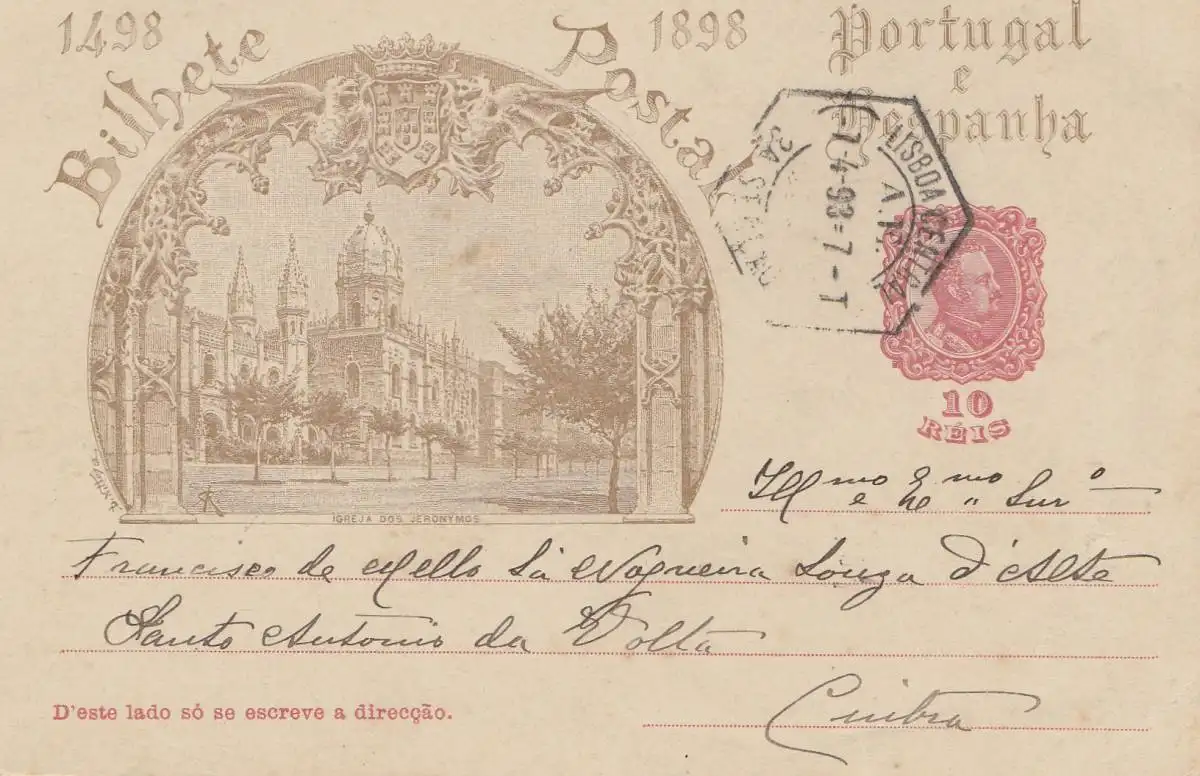 1498 Bilhete Postal 1898
Portugal
e
Hespanha
LISBOA CENTRAL
4-98=7-T
10
RÉIS
IGREJA DOS JERONYMOS
Ill mo e Ex mo Snr
Francisco de Mello Sá Nogueira Souza d'Alte
Santo Antonio da Volta
D'este lado só se escreve a direcção.